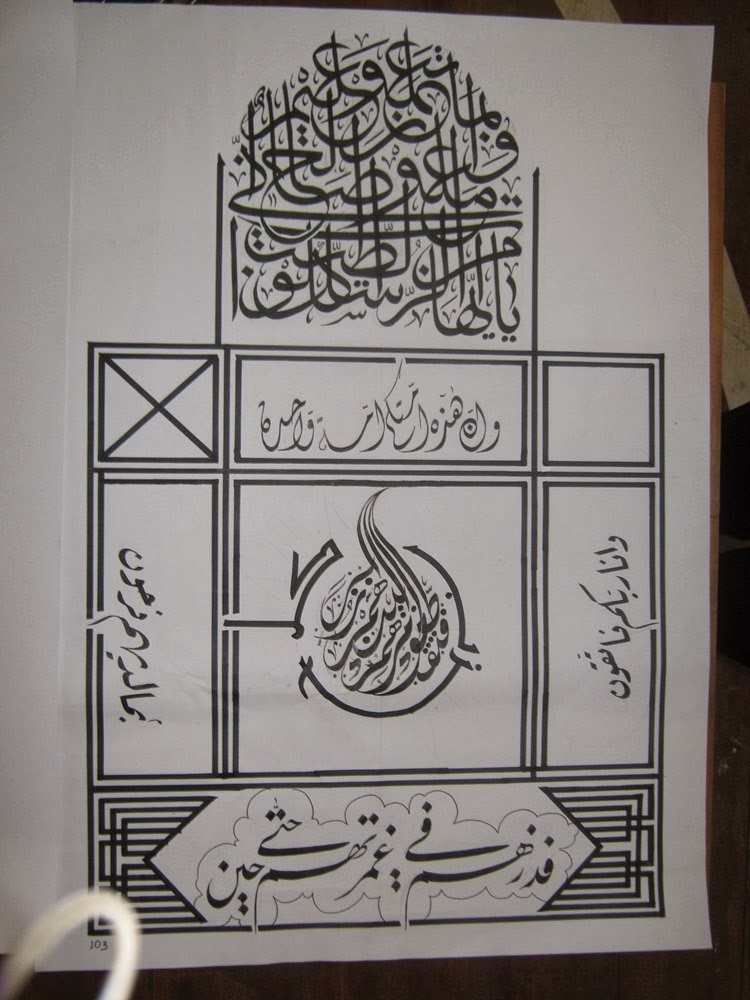 يا ايها الرسل كلوا من الطيبت واعملوا صالحا اني بما تعملون عليم
وان هذه امتكم امة واحدة
وانا ربكم فاتقون
فتقطعوا امرهم بينهم زبرا
بما لديهم
فذرهم في غمرتهم حتى حين
103